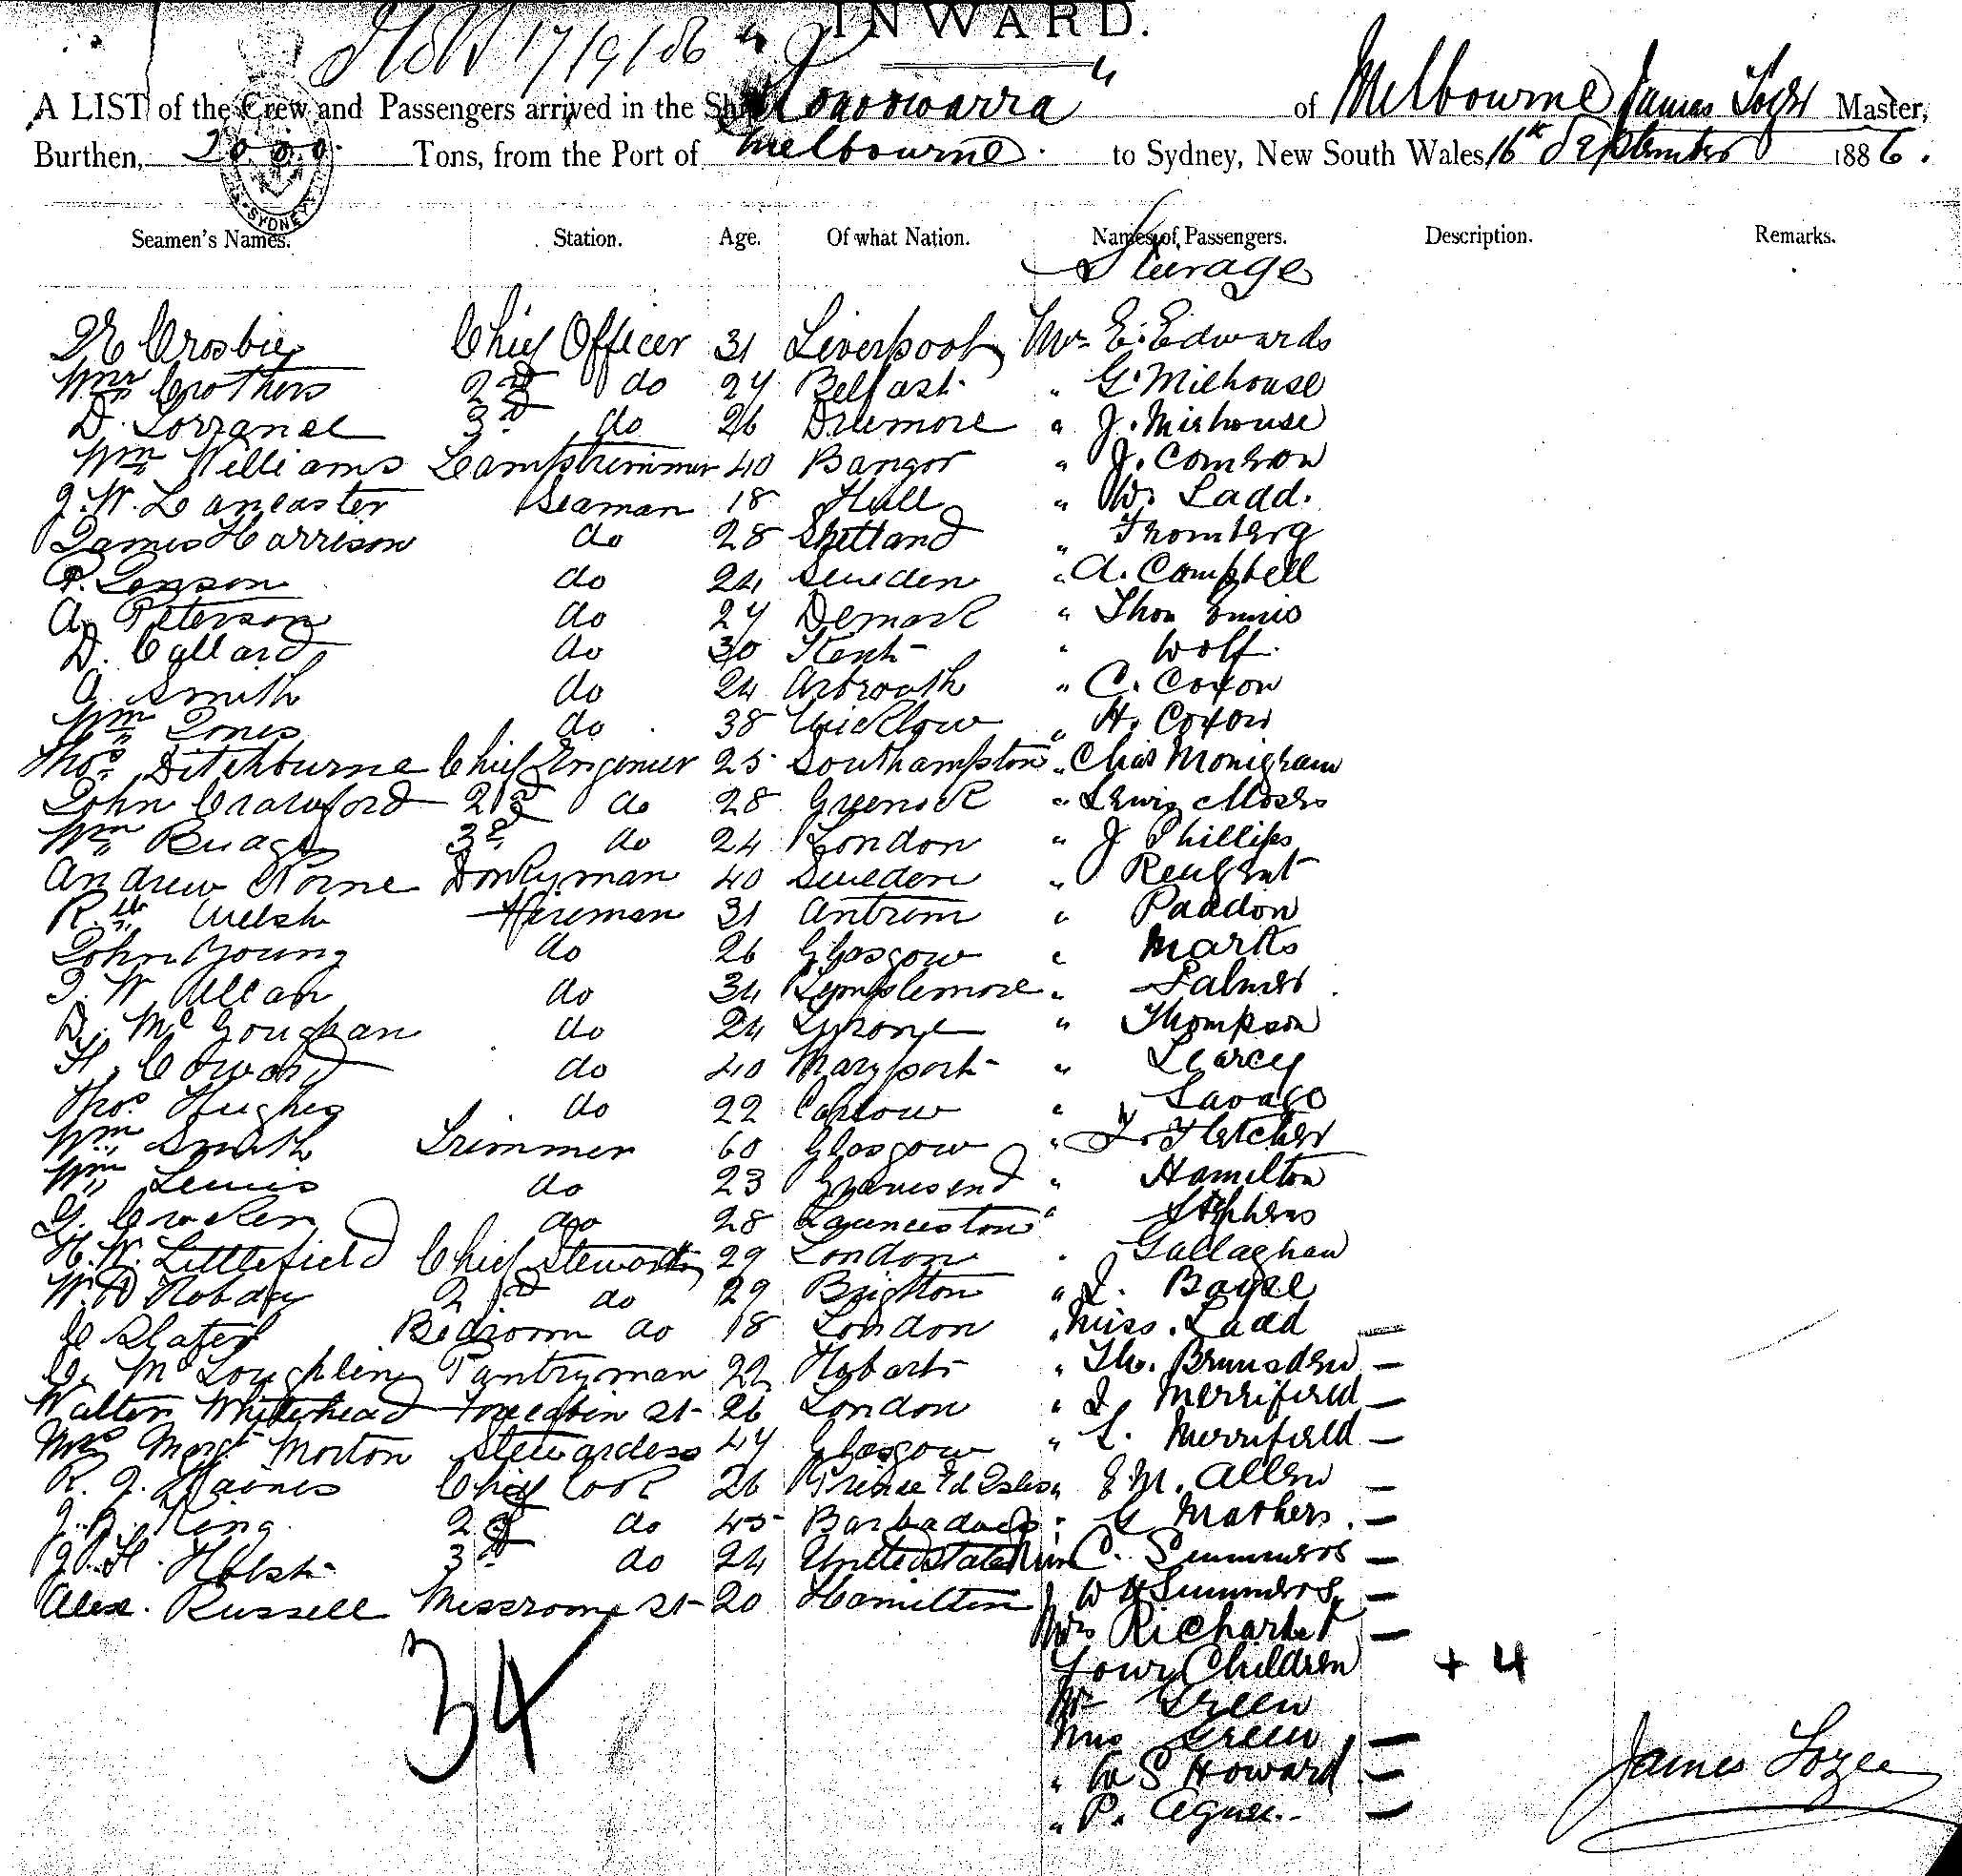 INWARD.
17/9/86 "
A LIST of the Crew and Passengers arrived in the Ship Konoowarra " of Melbourne James Master,
Burthen, 2000. Tons, from the Port of Melbourne. to Sydney, New South Wales 16th September 1886.
SYDNEY
Seamen's Names. Station. Age. Of what Nation. Names of Passengers. Description. Remarks.
Steerage
Crosbie Chief Officer 31 Liverpool Mr E. Edwards
Wm Crothers 2nd do 27 Belfast " G. Milhouse
D. 3rd do 26 Dremore " J. Milhouse
Wm Williams Lamptrimmer 40 Bangor " J. Comson
J. W. Lancaster Seaman 18 Hull " W. Ladd.
James Harrison do 28 Shetland " Thomberg
P. Jonson do 24 Sweden " A. Campbell
A. Peterson do 27 Demark " Thos Ennis
D. Callard do 30 Kent " Wolf.
A. Smith do 24 Arbroath " C. Coxon
Wm Jones do 38 Wicklow " H. Coxon
Thos Ditchburne Chief Engenier 25 Southampton " Chas Monigham
John Crawford 2nd do 28 Greenock " Lewis Moses
Wm 3rd do 24 London " J Phillips
Andrew Donkyman 40 Sweden "
R. Welsh Fireman 31 Antrim " Paddon
John Young do 26 Glasgow " Marks
J. W. Allan do 34 Templemore " Palmer
D. McGoughan do 24 Tyrone " Thompson
H. Coward do 40 Maryport " Learcy
Thos Hughes do 22 Carlow " Savage
Wm Smith Trimmer 60 Glasgow " Fletcher
Wm Lewis do 23 Gravesend " Hamilton
G. Crocker do 28 Launceston " Stephens
H. W. Littlefield Chief Steward 29 London " Gallaghan
W. D Hobday 2nd do 29 Brighton " J. Bayse
Slater Bedroom do 18 London " Miss. Ladd —
C. McLoughlin Pantryman 22 Hobart " Th. Brunsden —
Walter Whitehead Forecabin St 26 London " J. Merrifield —
Mrs Margt Morton Stewardess 47 Glasgow " L. Merrifield —
R. J. Haines Chief Cook 26 Prince Ed Isles " E. M. Allen —
J. B. King 2nd do 45 Barbadoes " G Mathers. —
J. H. Holst 3rd do 24 United States C. Simmons —
Alex. Russell Messroom St 20 Hamilton W H Simmons —
34
Mrs Richardet —
Four Children + 4
Mr Green
Mrs Green —
" W S Howard —
" P. Agnew. —
James